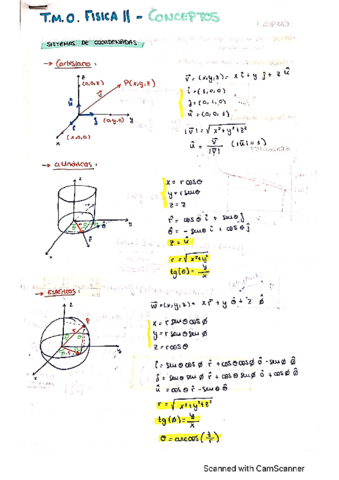 T.M.O. FISICA II - CONCEPTOS
SISTEMAS DE COORDENADAS
→ Cartesiano:
z
(0,0,z)
P(x,y,z)
(0,y,0)
y
x
(x,0,0)
v⃗ = (x,y,z) = x î + y ĵ + z û
î = (1,0,0)
ĵ = (0,1,0)
û = (0,0,1)
|v⃗| = √x²+y²+z²
û = v⃗/|v⃗| (|û| = 1)
→ Cilíndricos:
z
y
x
x = r cosθ
y = r senθ
z = z
r̂ = cosθ î + senθ ĵ
θ̂ = - senθ î + cosθ ĵ
ẑ = û
r = √x²+y²
tg(θ) = y/x
→ Esféricos:
z
P
y
x
w⃗ = (x,y,z) = x r̂ + y θ̂ + z φ̂
x = r senθ cosø
y = r senθ senø
z = r cosθ
î = senθ cosø r̂ + cosθ cosø θ̂ - senø ø̂
ĵ = senθ senø r̂ + cosθ senø θ̂ + cosø ø̂
û = cosθ r̂ - senθ θ̂
r = √x²+y²+z²
tg(ø) = y/x
θ = arccos(z/r)
Scanned with CamScanner